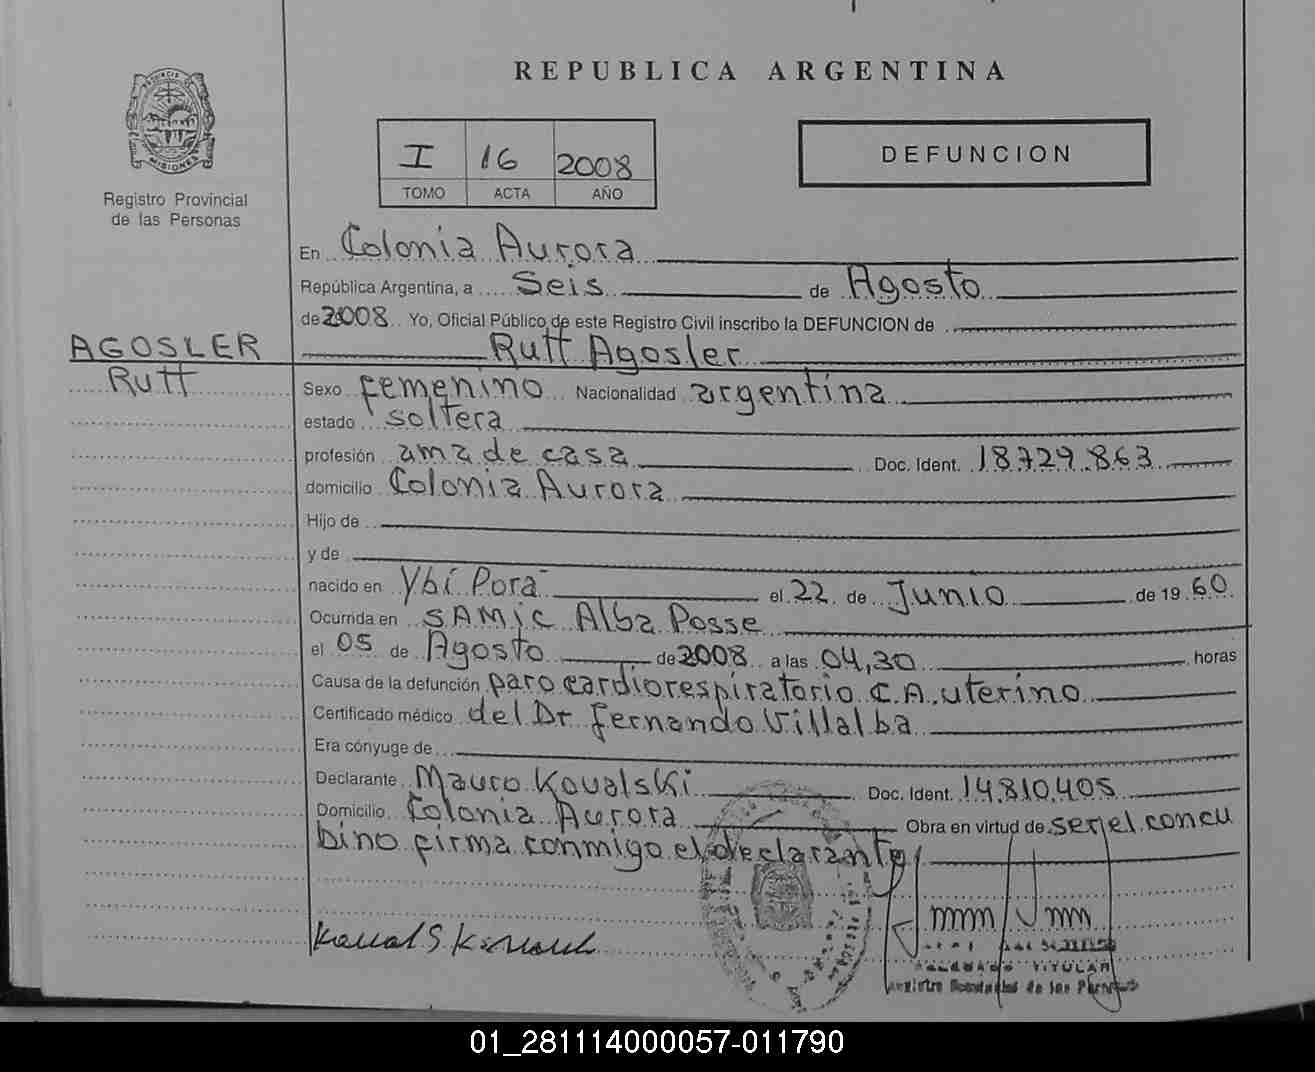 REPUBLICA ARGENTINA
PROVINCIA
MISIONES
Registro Provincial
de las Personas
I 16 2008
TOMO ACTA AÑO
DEFUNCION
En Colonia Aurora
República Argentina, a Seis de Agosto
de 2008 Yo, Oficial Público de este Registro Civil inscribo la DEFUNCION de
AGOSLER
Rutt
Rutt Agosler
Sexo femenino Nacionalidad argentina
estado soltera
profesión ama de casa Doc. Ident. 18.729.863
domicilio Colonia Aurora
Hijo de
y de
nacido en Ybí Porá el 22 de Junio de 1960
Ocurrida en SAMIC Alba Posse
el 05 de Agosto de 2008 a las 04,30 horas
Causa de la defunción paro cardiorespiratorio C.A. uterino
Certificado médico del Dr Fernando Villalba
Era cónyuge de
Declarante Mauro Kovalski Doc. Ident. 14.810.405
Domicilio Colonia Aurora Obra en virtud de ser el concu
bino firma conmigo el declarante
TITULAR
de las
01_281114000057-011790